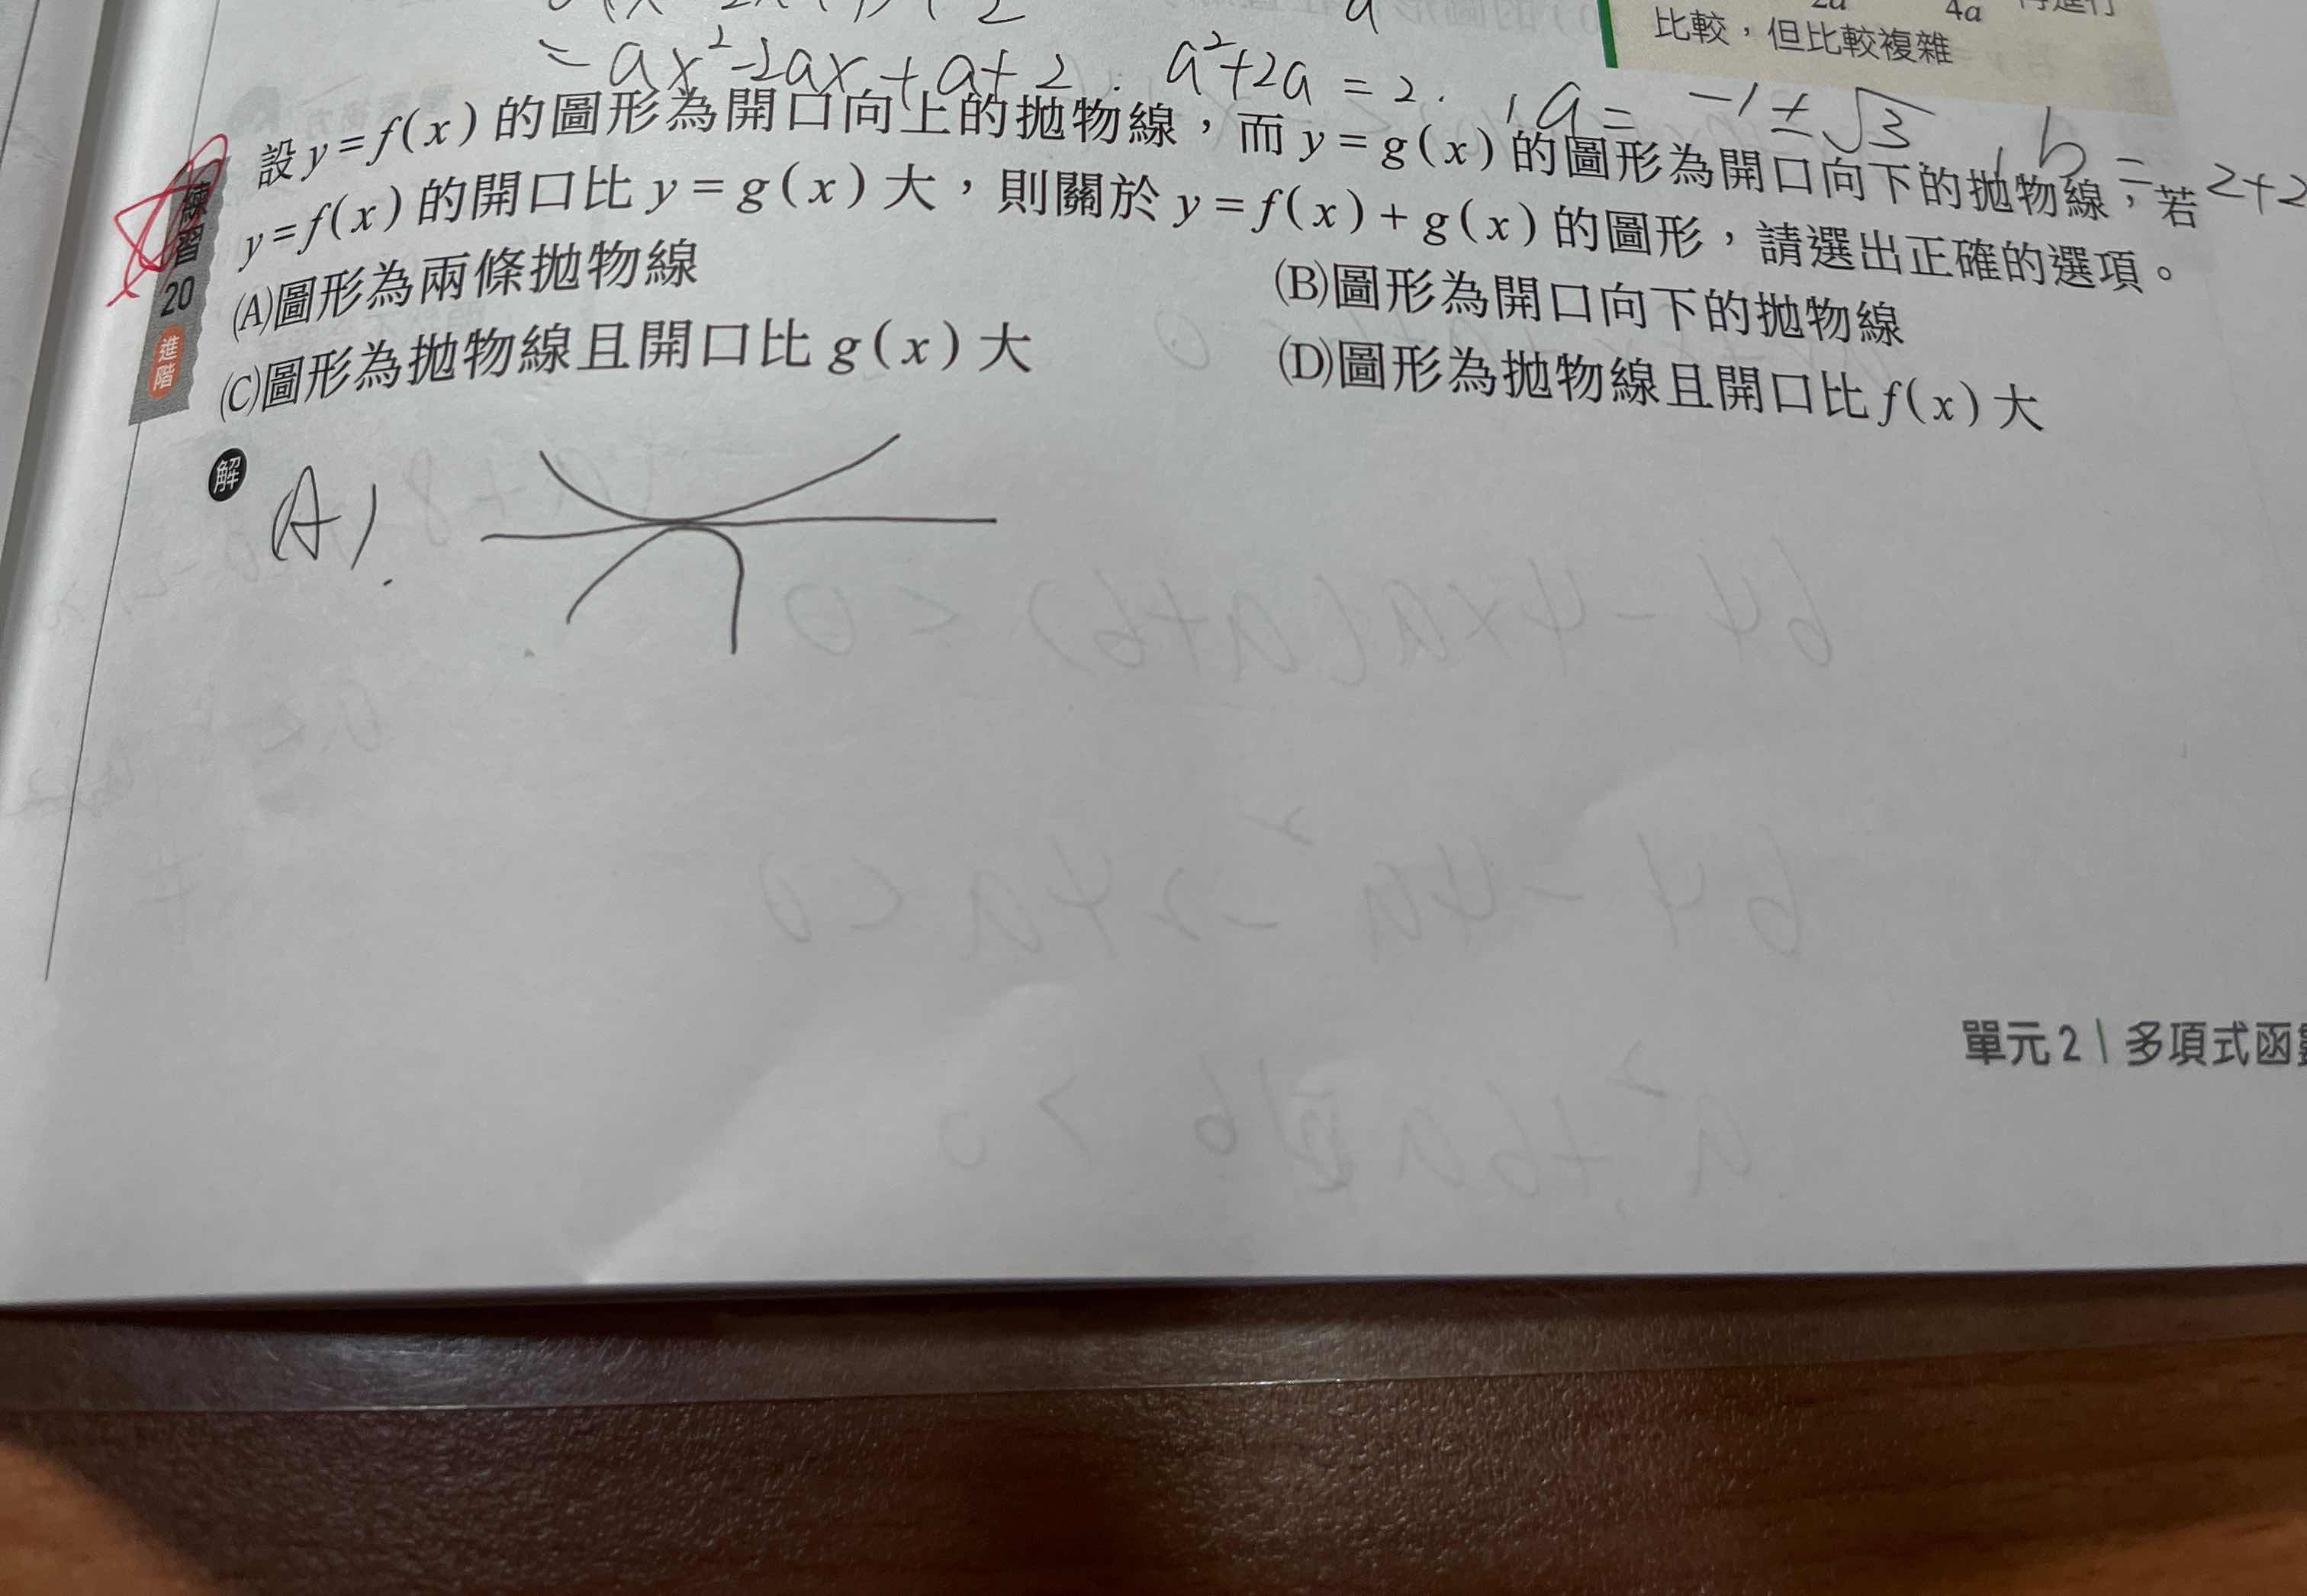 2a 4a 再進行
比較，但比較複雜
= ax²-2ax+a+2. a²+2a=2. , a= -1±√3 , b= 2+2
練習20 進階
設y=f(x)的圖形為開口向上的拋物線，而y=g(x)的圖形為開口向下的拋物線，若
y=f(x)的開口比y=g(x)大，則關於y=f(x)+g(x)的圖形，請選出正確的選項。
(A)圖形為兩條拋物線 (B)圖形為開口向下的拋物線
(C)圖形為拋物線且開口比g(x)大 (D)圖形為拋物線且開口比f(x)大
解
(A).
單元2 | 多項式函